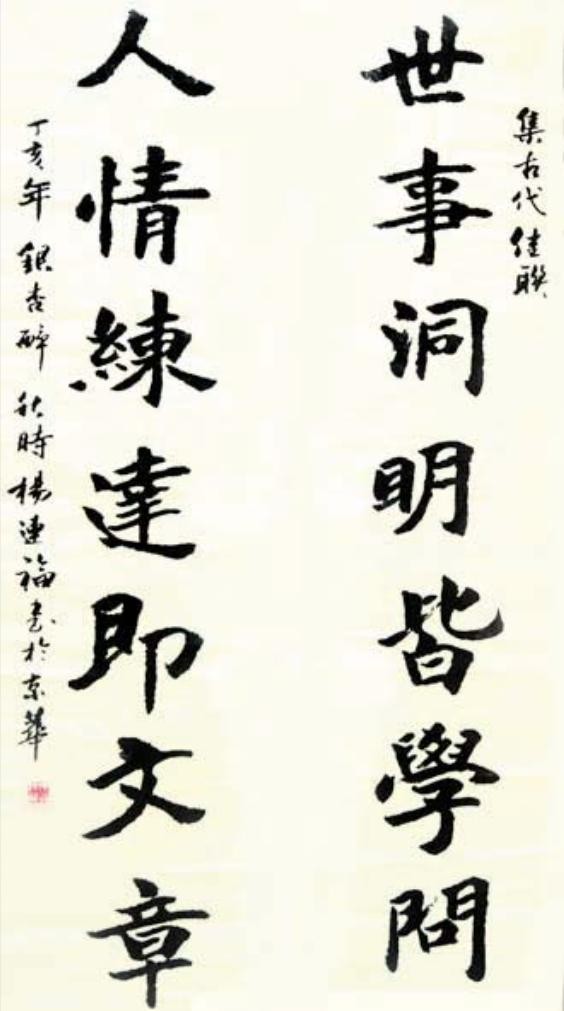 集古代佳聯
世事洞明皆學問
人情練達即文章
丁亥年銀杏醉秋時楊連福書於京華